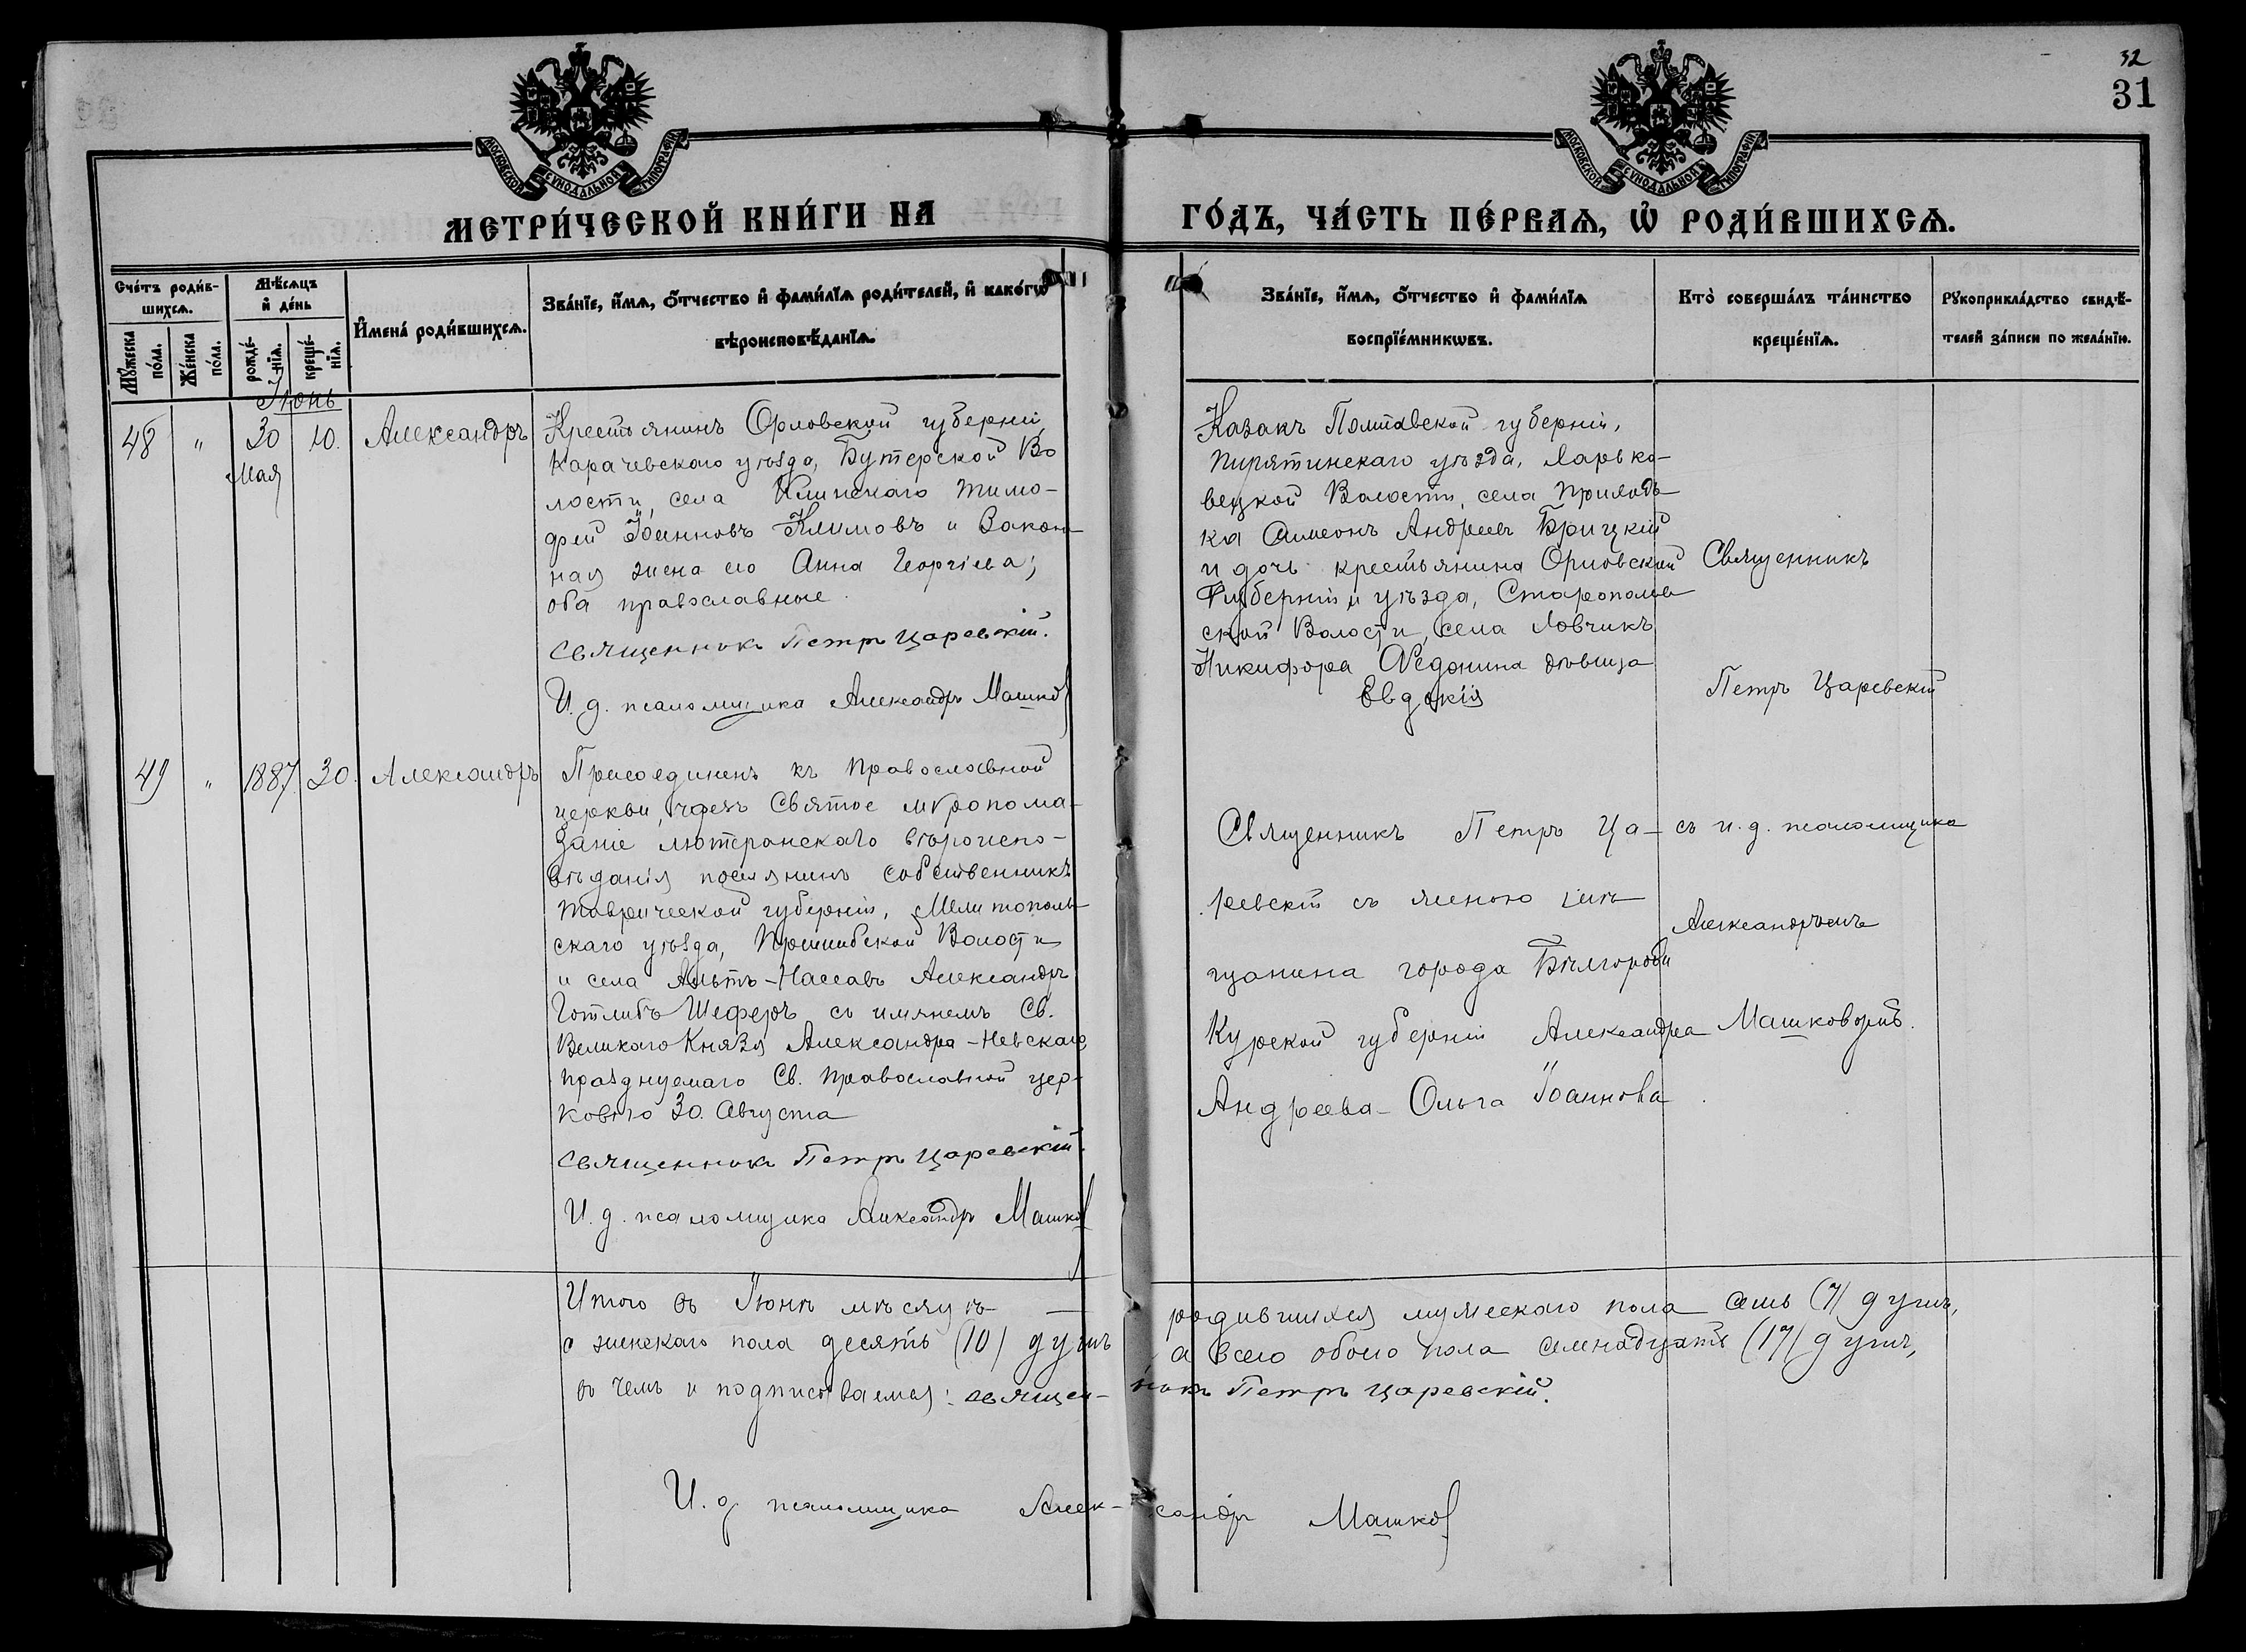 32
31
МОСКОВСКОЙ СѴНОДАЛЬНОЙ ТИПОГРАФІИ
МОСКОВСКОЙ СѴНОДАЛЬНОЙ ТИПОГРАФІИ
МЕТРИ́ЧЕСКОЙ КНИ́ГИ НА
ГО́ДЪ, ЧА́СТЬ ПЕ́РВАѦ, Ѡ РОДИ́ВШИХСѦ.
Сче́тъ роди́в-
шихсѧ.
Мѣ́сѧцъ
и де́нь
Мꙋ́жеска
по́ла.
Же́нска
по́ла.
рожде́-
нїѧ.
креще́-
нїѧ.
Имена̀ роди́вшихсѧ.
Зва́нїе, и́мѧ, о́тчество и фами́лїѧ роди́телей, и како́гѡ
вѣроисповѣ́данїѧ.
Зва́нїе, и́мѧ, о́тчество и фами́лїѧ
воспрїе́мникѡвъ.
Кто̀ соверша́лъ та́инство
креще́нїѧ.
Рꙋкоприкла́дство свидѣ́-
телей за́писи по жела́нїю.
Іюнь
48
"
30
Мая
10.
Александръ
Крестьянинъ Орловской губерніи,
Карачевскаго уѣзда, Бутерской Во
лости, села Клинскаго Тимо-
фей Іоанновъ Климовъ и Закон-
ная жена его Анна Георгіева;
оба православные.
Священникъ Петръ Царевскій.
И. д. псаломщика Александръ Машков
Казакъ Полтавской губерніи,
Пирятинскаго уѣзда, Харько-
вецкой Волости, села Приходь
ка Симеонъ Андреевъ Брицкій
и дочь крестьянина Орловской
Губерніи и уѣзда, Старополев
ской Волости, села Ловчикъ
Никифора Федонина дѣвица
Евдокія
Священникъ
Петръ Царевскій
49
"
1887
30.
Александръ
Присоединенъ къ Православной
церкви, чрезъ Святое мѵропома-
заніе лютеранскаго вѣроиспо-
вѣданія поселянинъ собственникъ
Таврической губерніи, Мелитополь-
скаго уѣзда, Пришибской Волости
и села Альтъ-Нассавъ Александръ
Готлибъ Шеферъ съ имянемъ Св.
Великаго Князя Александра-Невскаго
празднуемаго Св. Православной цер-
ковію 30. Августа
Священникъ Петръ Царевскій.
И. д. псаломщика Александръ Машков
Священникъ Петръ Ца-
ревскій съ женою мѣ
щанина города Бѣлгорода
Курской губерніи Александра
Андреева - Ольга Іоаннова
съ и. д. псаломщика
Александромъ
Машковымъ.
Итого въ Іюнѣ мѣсяцѣ — родившихся мужескаго пола семь (7) душъ,
а женскаго пола десять (10) душъ а всего обоего пола семнадцать (17) душъ,
въ чемъ и подписываемся: священ- никъ Петръ Царевскій.
И. д. псаломщика Алек- сандръ Машков